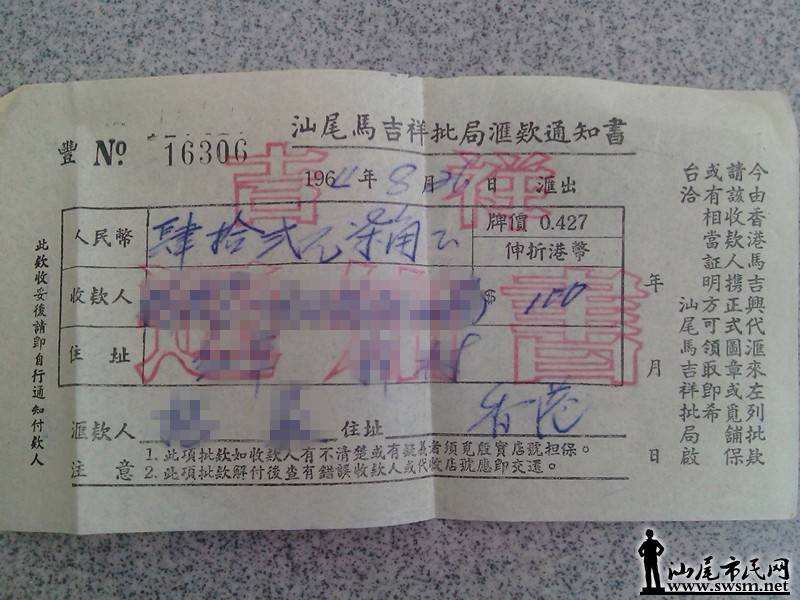 汕尾馬吉祥批局滙欵通知書
豐 No 16306
1964年8月26日 滙出
吉祥
通知書
人民幣 肆拾弍元柒角正
牌價 0.427
伸折港幣
收欵人
$ 100
住址
滙欵人 住址 香港
注意
1. 此項批欵如收欵人有不清楚或有疑義者須覓殷實店號担保。
2. 此項批欵解付後查有錯誤收欵人或代收店號應即交還。
此欵收妥後請即自行通知付欵人
今由香港馬吉興代滙來左列批欵
請該收欵人携正式圖章或覓舖保
或有相當証明方可領取即希
台洽 汕尾馬吉祥批局啟
年 月 日
汕尾市民网
www.swsm.net